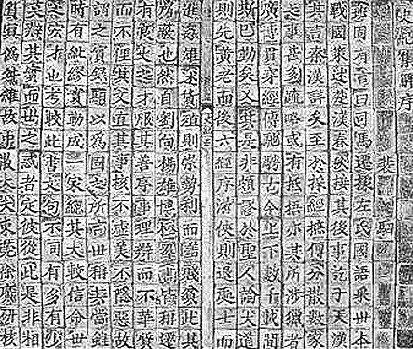 史記集解序
裴駰
班固有言曰司馬遷據左氏國語采世本
戰國策述楚漢春秋接其後事訖于天漢
其言秦漢詳矣至於採經摭傳分散數家
之事甚多疏略或有抵捂亦其所涉獵者
廣博貫穿經傳馳騁古今上下數千載閒
斯已勤矣又其是非頗謬於聖人論大道
則先黃老而後六經序游俠則退處士而
進姦雄述貨殖則崇勢利而羞賤貧此其
所蔽也然自劉向揚雄博極羣書皆稱遷
有良史之才服其善序事理辯而不華質
而不俚其文直其事核不虛美不隱惡故
謂之實錄駰以為固之所言世稱其當雖
時有紕繆實勒成一家總其大較信命世
之宏才也考較此書文句不同有多有少
莫辯其實而世之惑者定彼從此是非相
貿真偽舛雜故中散大夫東莞徐廣研核